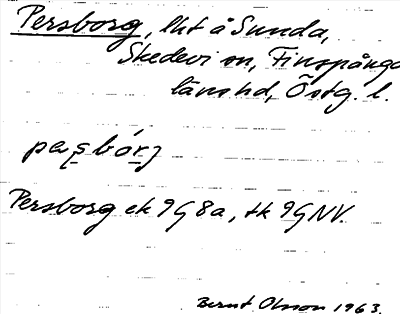 Persborg, lht å Sunda,
Skedevi sn, Finspånga
läns hd, Östg. l.
pæʂbórj
Persborg ek 9G8a, tk 9GNV.
Bernt Olsson 1963.